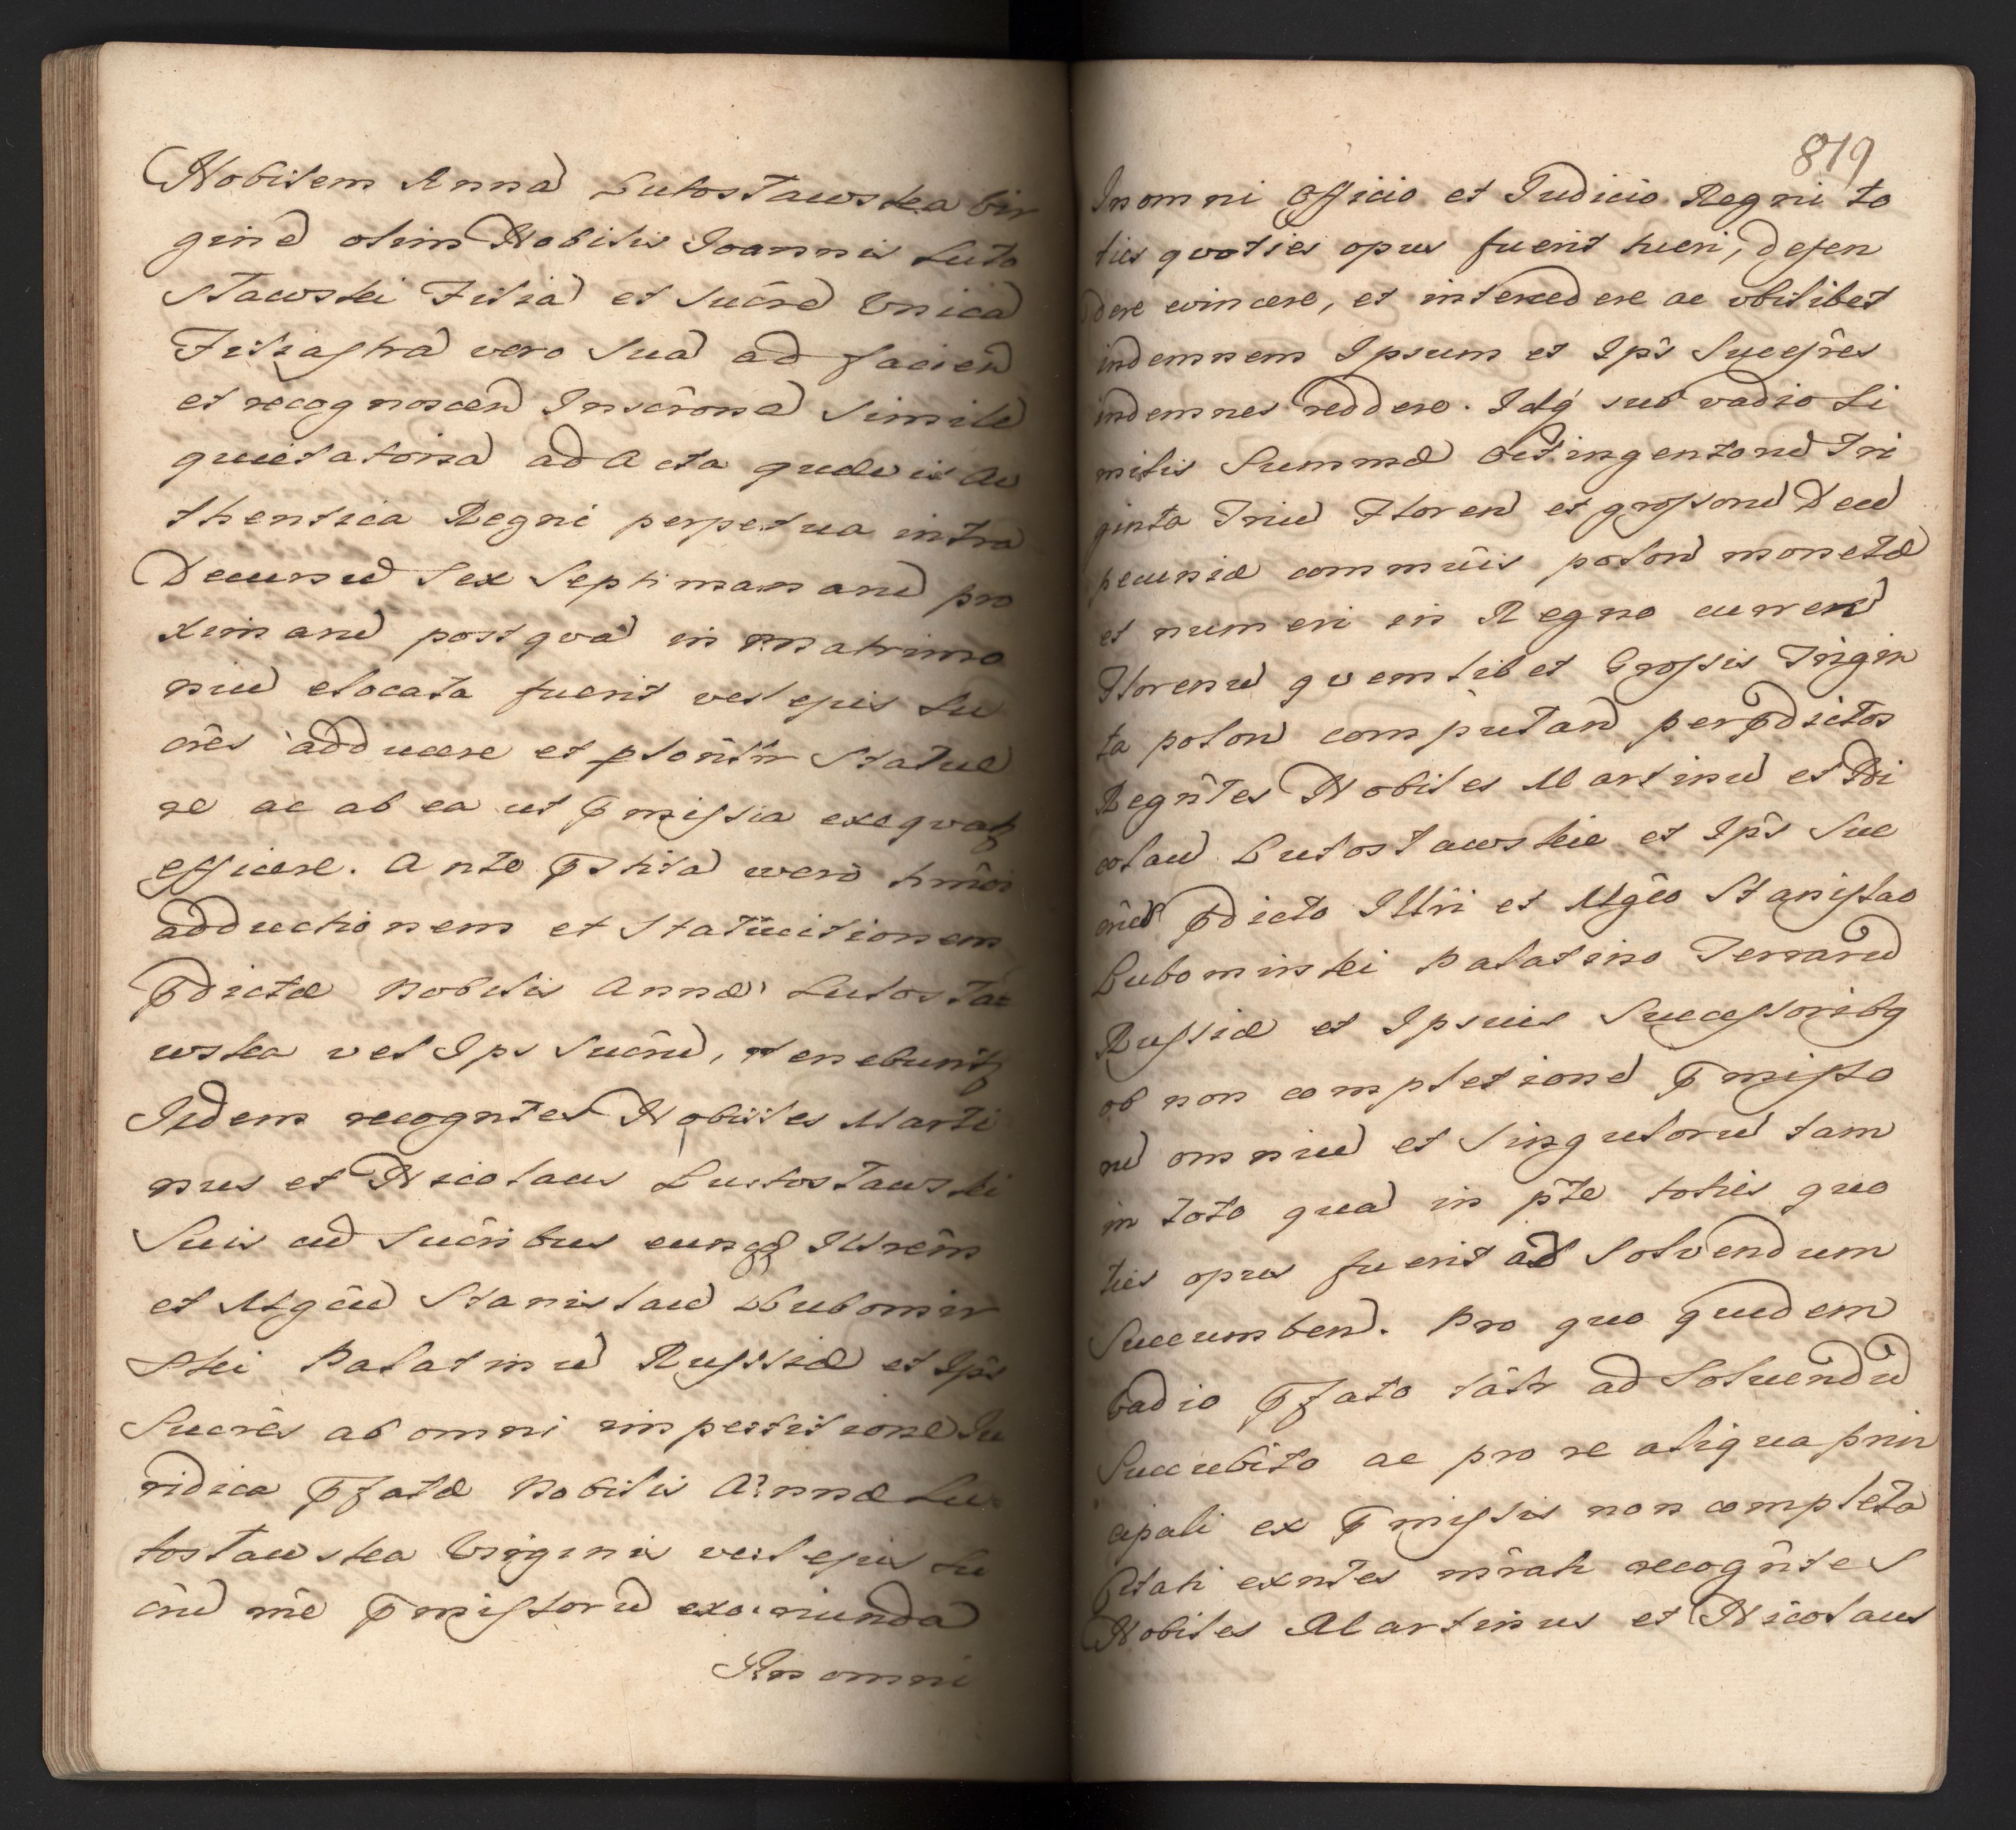 Nobilem Annā Lutosławska vir
ginē olim Nobilis Joannis Luto
sławski Filiā et Sucrē Unicā
Filiastrā vero Suā ad facień
et recognosceń Inscrōnē Similē
quietatoriā ad Acta quævis Au
thentica Regni perpetua intra
Decursū Sex Septimanarū pro
ximarū postqvā in matrimo
niū elocata fuerit vel ejus Su
crēs adducere et psonltr Statue
re ac ab ea ut pmissa exeqvatz
efficere. Ante pstitā vero hmōi
adductionem et Statuitionem
pdictæ Nobilis Annæ Lutosła=
wska vel Ips Sucrū, tenebuntz
Iidem recogntes Nobiles Marti
nus et Nicolaus Lutosławski
Suis cū Sucribus eundē Illrēm
et Mgcū Stanislaū Lubomir
ski Palatinū Russiæ et Ips
Sucrēs ab omni impetitione Ju
ridica pfatæ Nobilis Annæ Lu
tosławska Virginis vel ejus Su
crū rōe pmissorū exoriunda
In omni
819
In omni Officio et Judicio Regni to
ties qvoties opus fuerit tueri, defen
dere evincere, et intercedere ac vbilibet
indemnem Ipsum et Ips Sucessrēs
indemnes reddere. Idq sub vadio Si
milis Summæ Octingentorū Tri
ginta Triū Florenō et grossorū Decē
pecuniæ commūis polonō monetæ
et numeri in Regno currenō
Florenū qvemlibet Grossis Trigin
ta polonō computanō per pdictos
Regntes Nobiles Martinū et Ni
colaū Lutosławskie et Ips Suc
crēs pdicto Illri et Mgco Stanislao
Lubomirski Palatino Terrarū
Russiæ et Ipsius Successoribq
ob non completionē pmisso
rū omniū et Singulorū tam
in toto quā in pte toties quo
ties opus fuerit ad Solvendum
Succumbenō. Pro quo quidem
vadio pfato ad Solvendū
Succubito ac pro re aliqua prin
cipali ex pmissis non completa
citati recogntes
Nobiles Martinus et Nicolaus